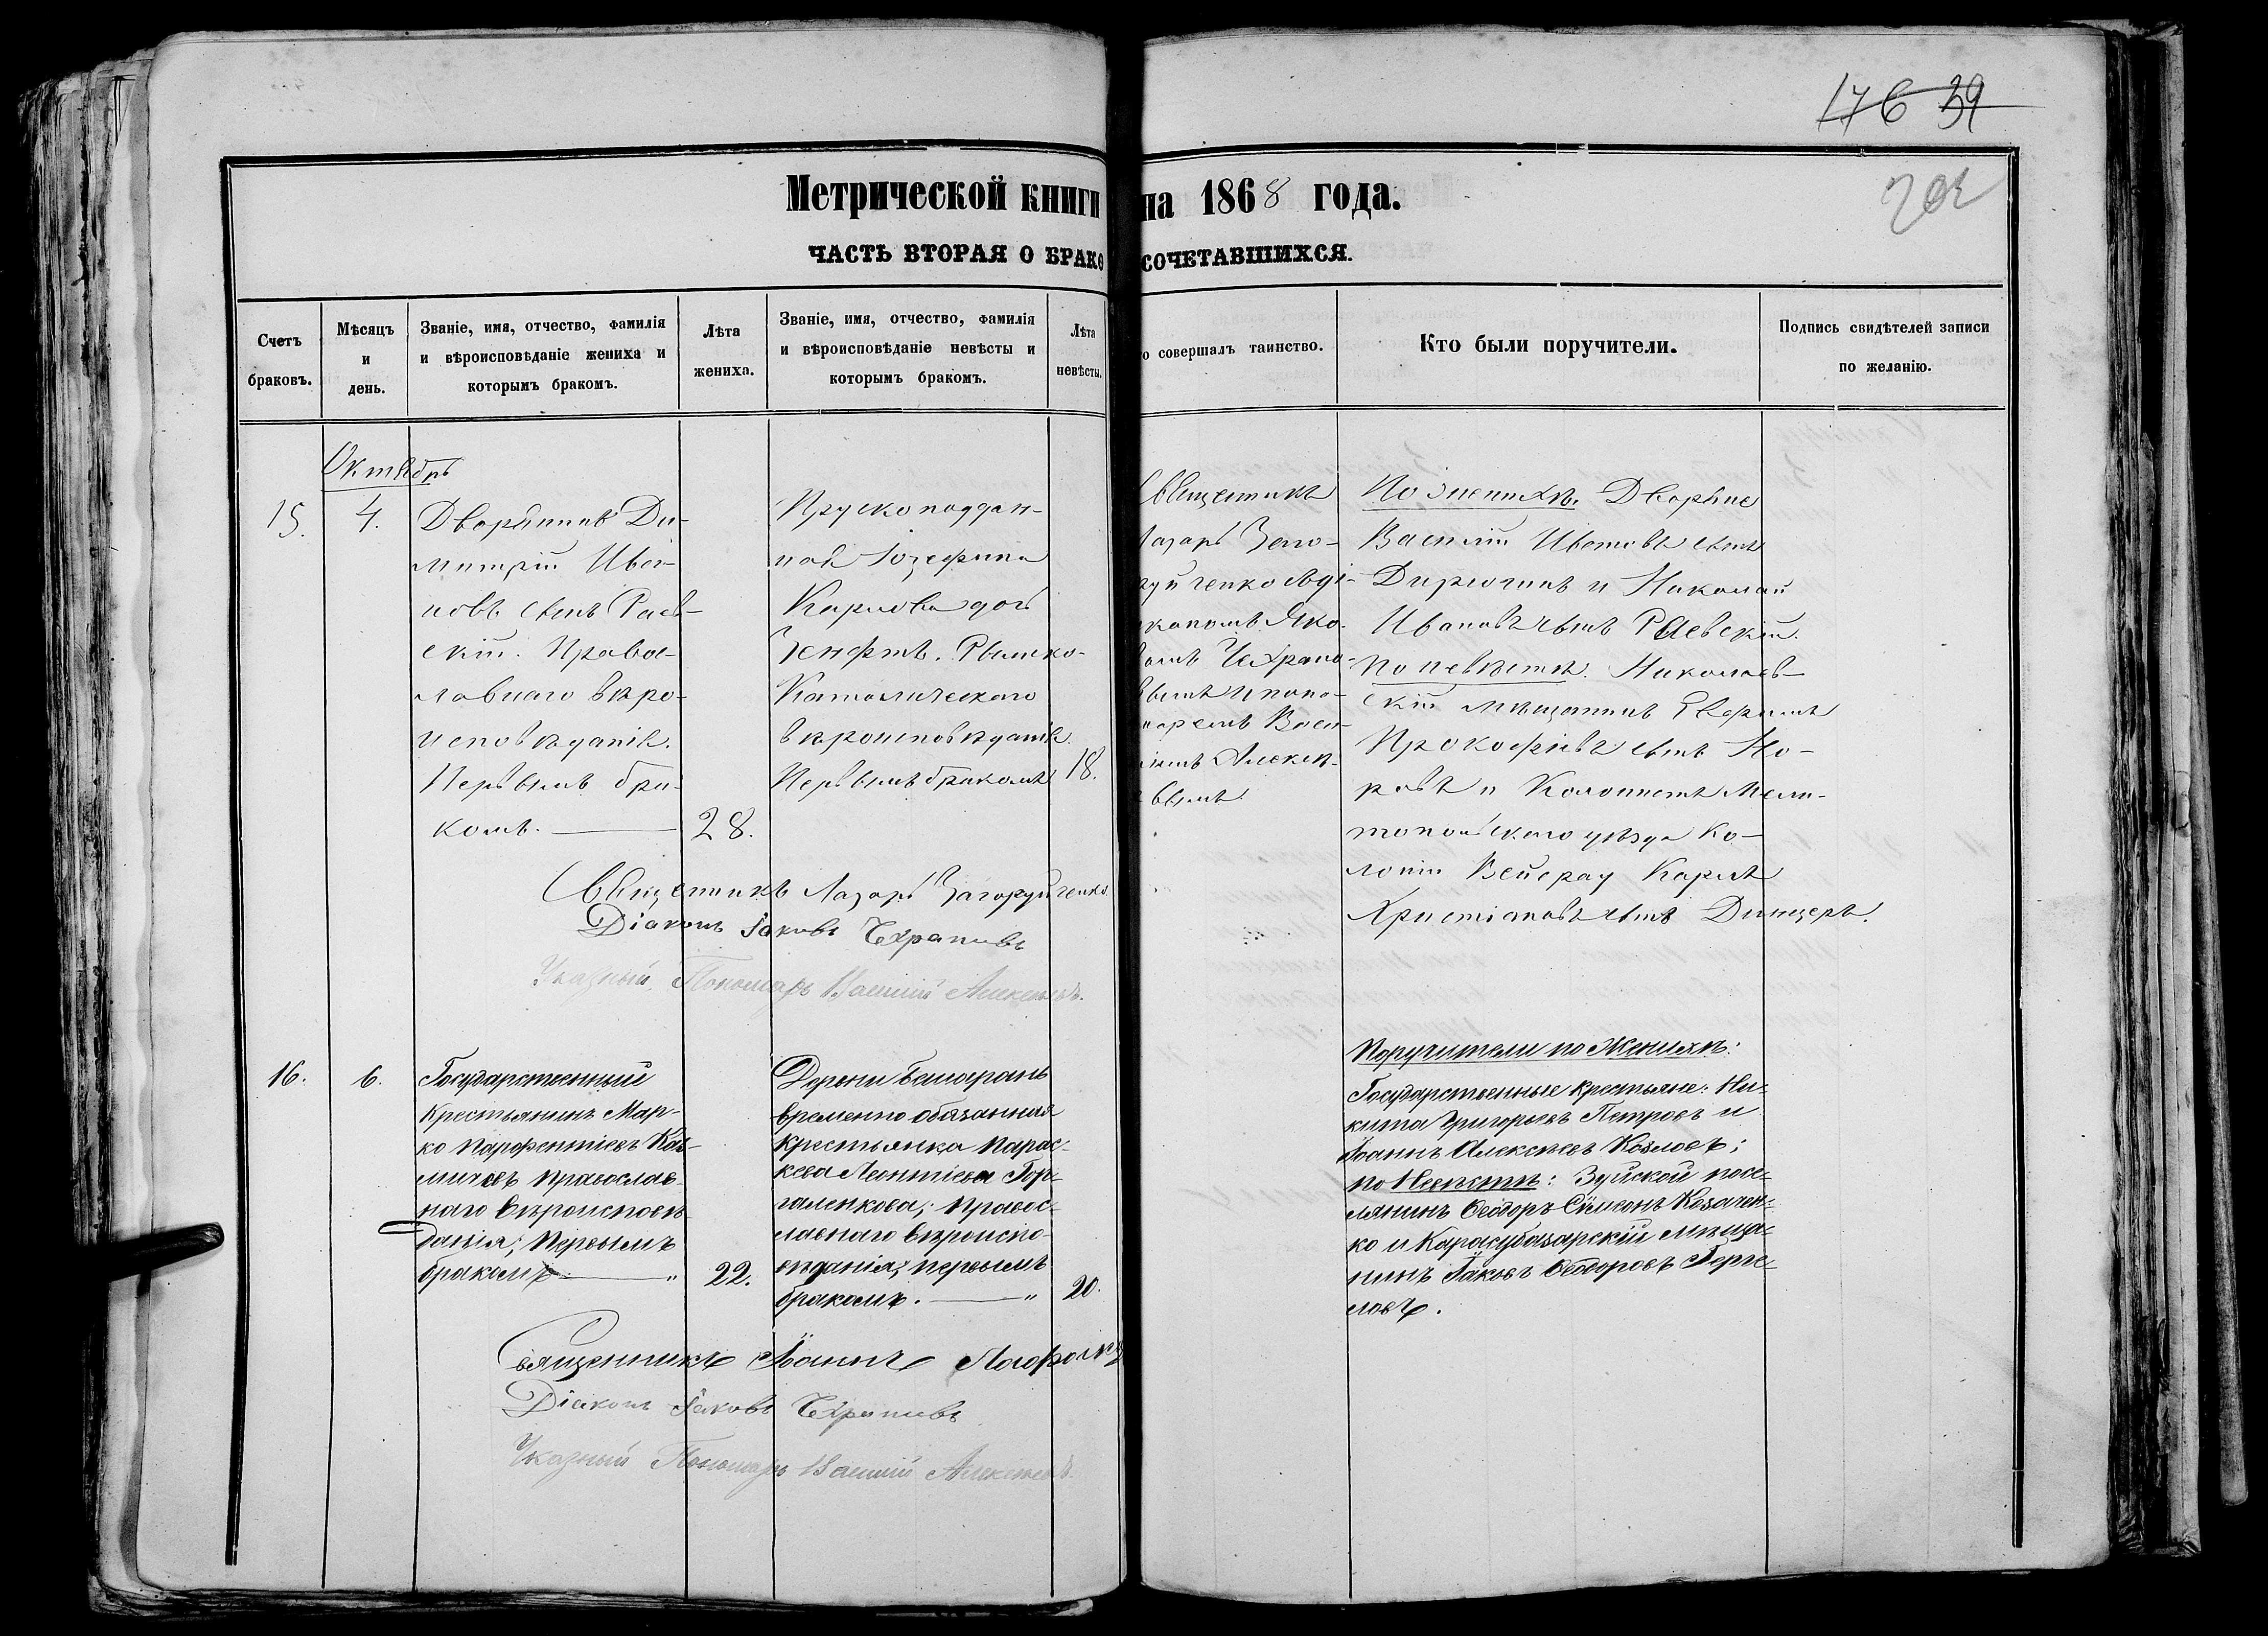 176 39
202
Метрической книги на 1868 года.
ЧАСТЬ ВТОРАЯ О БРАКОСОЧЕТАВШИХСЯ.
Счетъ
браковъ.
Мѣсяцъ
и
день.
Званіе, имя, отчество, фамилія
и вѣроисповѣданіе жениха и
которымъ бракомъ.
Лѣта
жениха.
Званіе, имя, отчество, фамилія
и вѣроисповѣданіе невѣсты и
которымъ бракомъ.
Лѣта
невѣсты.
о совершалъ таинство.
Кто были поручители.
Подпись свидѣтелей записи
по желанію.
Октябрь
15.
4.
Дворянинъ Ди-
митрій Ива-
новъ сынъ Раев-
скій. Правос-
лавнаго вѣро-
исповѣданія.
Первымъ бра-
комъ.
28.
Прускоподдан-
ная Іозефина
Карлова дочь
Зенфтъ. Римско-
Католическаго
вѣроисповѣданія.
Первымъ бракомъ
18.
Священникъ
Лазарь Заго-
руйченко съ Ді-
акономъ Яко-
вомъ Чехрано-
вымъ и поно-
маремъ Васи-
ліемъ Алексѣ-
евымъ.
По женихѣ. Дворяне
Василій Ивановъ сынъ
и Николай
Ивановъ сынъ РАевскій.
по невѣстѣ. Николаев-
скій мѣщанинъ
Прокофіевъ сынъ Но-
ровъ и Колонистъ Мели-
топольскаго уѣзда Ко-
лоніи Вейерау Карлъ
Христіановъ сынъ Динцеръ.
Священникъ Лазарь Загоруйченко
Діаконъ Іаковъ Чехрановъ
Указный Пономарь Василій Алексѣевъ.
16.
6.
Государственный
крестьянинъ Мар-
ко Парфентіевъ Кал-
мичевъ православ-
наго вѣроисповѣ-
данія; первымъ
бракомъ "
22.
Дерени Бешаранъ
временно обязанная
крестьянка Парас-
кева Леонтіева Гор-
галенкова; правос-
лавнаго вѣроиспо-
вѣданія; первымъ
бракомъ. "
20.
Поручители по Женихѣ:
Государственные крестьяне: Ни-
кита Григорьевъ Петровъ и
Іоаннъ Алексѣевъ Козловъ;
по Невѣстѣ: Зуйской посе-
лянинъ Ѳеодоръ Симеонъ Козачен-
ко и Карасубазарскій мѣща-
нинъ Іаковъ Ѳеодоровъ
ловъ.
Священникъ Іоаннъ
Діаконъ Іаковъ Чехрановъ
Указный Пономарь Василій Алексѣевъ.